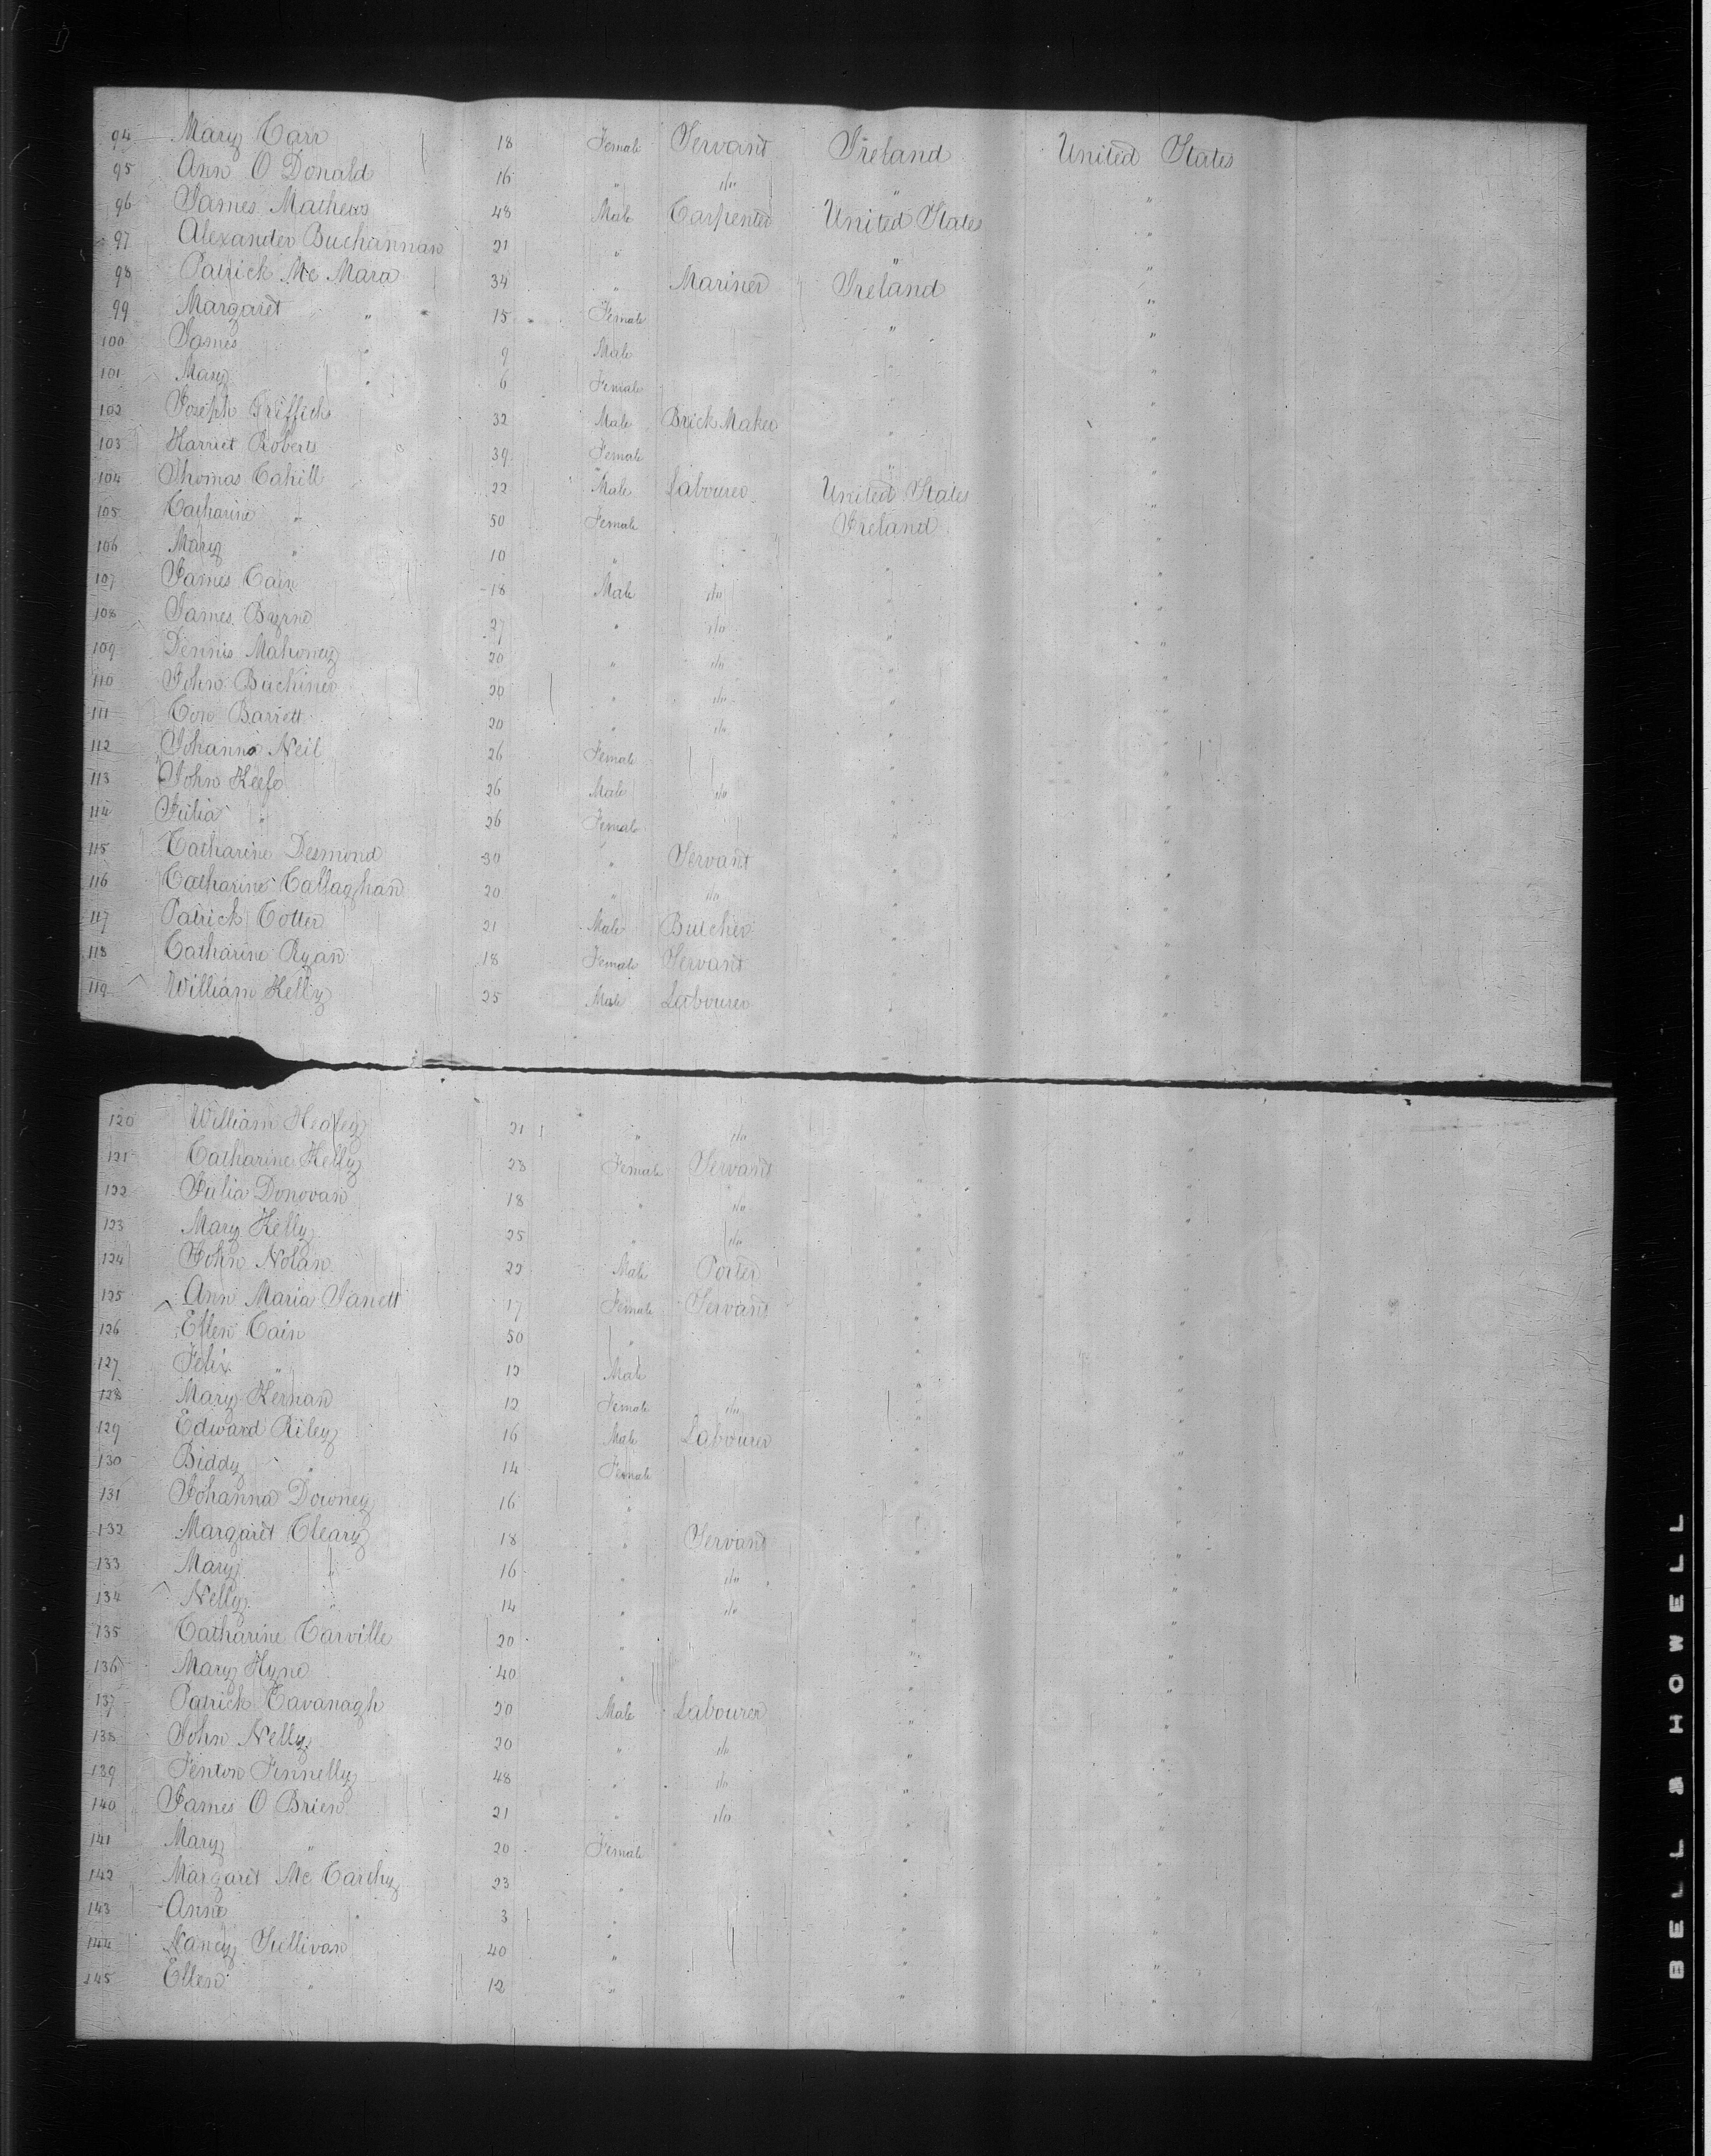 94 Mary Carr 18 Female Servant Ireland United States
95 Ann O Donald 16 " do " "
96 James Mathews 48 Male Carpenter United States "
97 Alexander Buchannan 21 " " "
98 Patrick Mc Mara 34 " Mariner Ireland "
99 Margaret " 15 Female " "
100 James " 9 Male " "
101 Mary " 6 Female " "
102 Joseph Griffith 32 Male Brick Maker " "
103 Harriet Roberts 39 Female " "
104 Thomas Cahill 22 Male Labourer United States "
105 Catharine " 50 Female Ireland "
106 Mary " 10 " " "
107 James Cain 18 Male do " "
108 James Byrne 27 " do " "
109 Dennis Mahoney 20 " do " "
110 John 20 " do " "
111 Barrett 20 " do " "
112 Johanna Neil 26 Female " "
113 John Keefe 26 Male do " "
114 Julia " 26 Female " "
115 Catharine Desmond 30 " Servant " "
116 Catharine Callaghan 20 " do " "
117 Patrick Cotter 21 Male Butcher " "
118 Catharine Ryan 18 Female Servant " "
119 William Kelly 25 Male Labourer " "
120 William Healey 21 " do " "
121 Catharine Kelly 28 Female Servant " "
122 Julia Donovan 18 " do " "
123 Mary Kelly 25 " do " "
124 John Nolan 22 Male Porter " "
125 Ann Maria 17 Female Servant " "
126 Ellen Cain 50 " " "
127 Felix " 12 Male " "
128 Mary Kernan 12 Female do " "
129 Edward Riley 16 Male Labourer " "
130 Biddy " 14 Female " "
131 Johanna Downey 16 " " "
132 Margaret Cleary 18 " Servant " "
133 Mary " 16 " do " "
134 Nelly " 14 " do " "
135 Catharine Carville 20 " " "
136 Mary Hyne 40 " " "
137 Patrick Cavanagh 20 Male Labourer " "
138 John Nelly 20 " do " "
139 Fenton Fennelly 48 " do " "
140 James O Brien 21 " do " "
141 Mary " 20 Female " "
142 Margaret Mc Carthy 23 " " "
143 Anne " 3 " " "
144 Nancy Sullivan 40 " " "
145 Ellen " 12 " " "
BELL & HOWELL